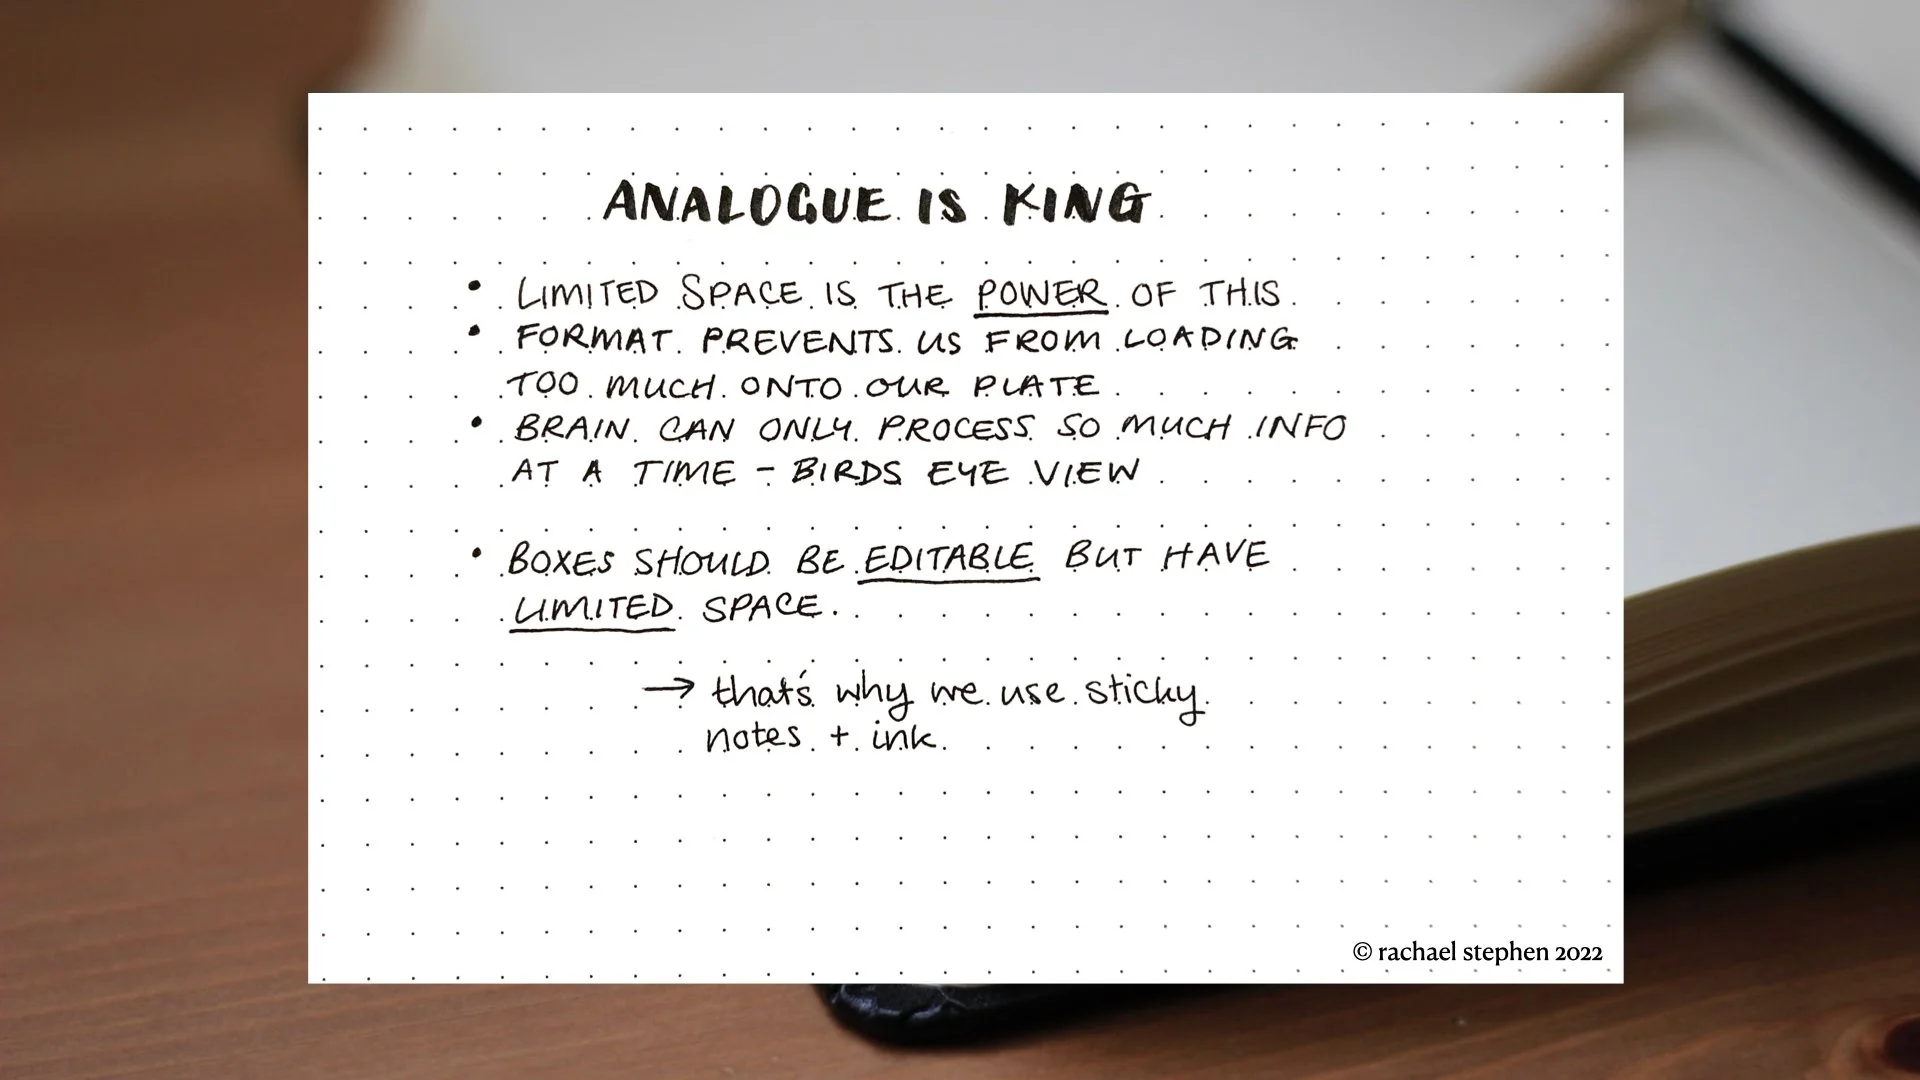 ANALOGUE IS KING
• LIMITED SPACE IS THE POWER OF THIS
• FORMAT PREVENTS US FROM LOADING
TOO MUCH ONTO OUR PLATE
• BRAIN CAN ONLY PROCESS SO MUCH INFO
AT A TIME - BIRDS EYE VIEW
• BOXES SHOULD BE EDITABLE BUT HAVE
LIMITED SPACE.
→ that's why we use sticky
notes + ink.
© rachael stephen 2022